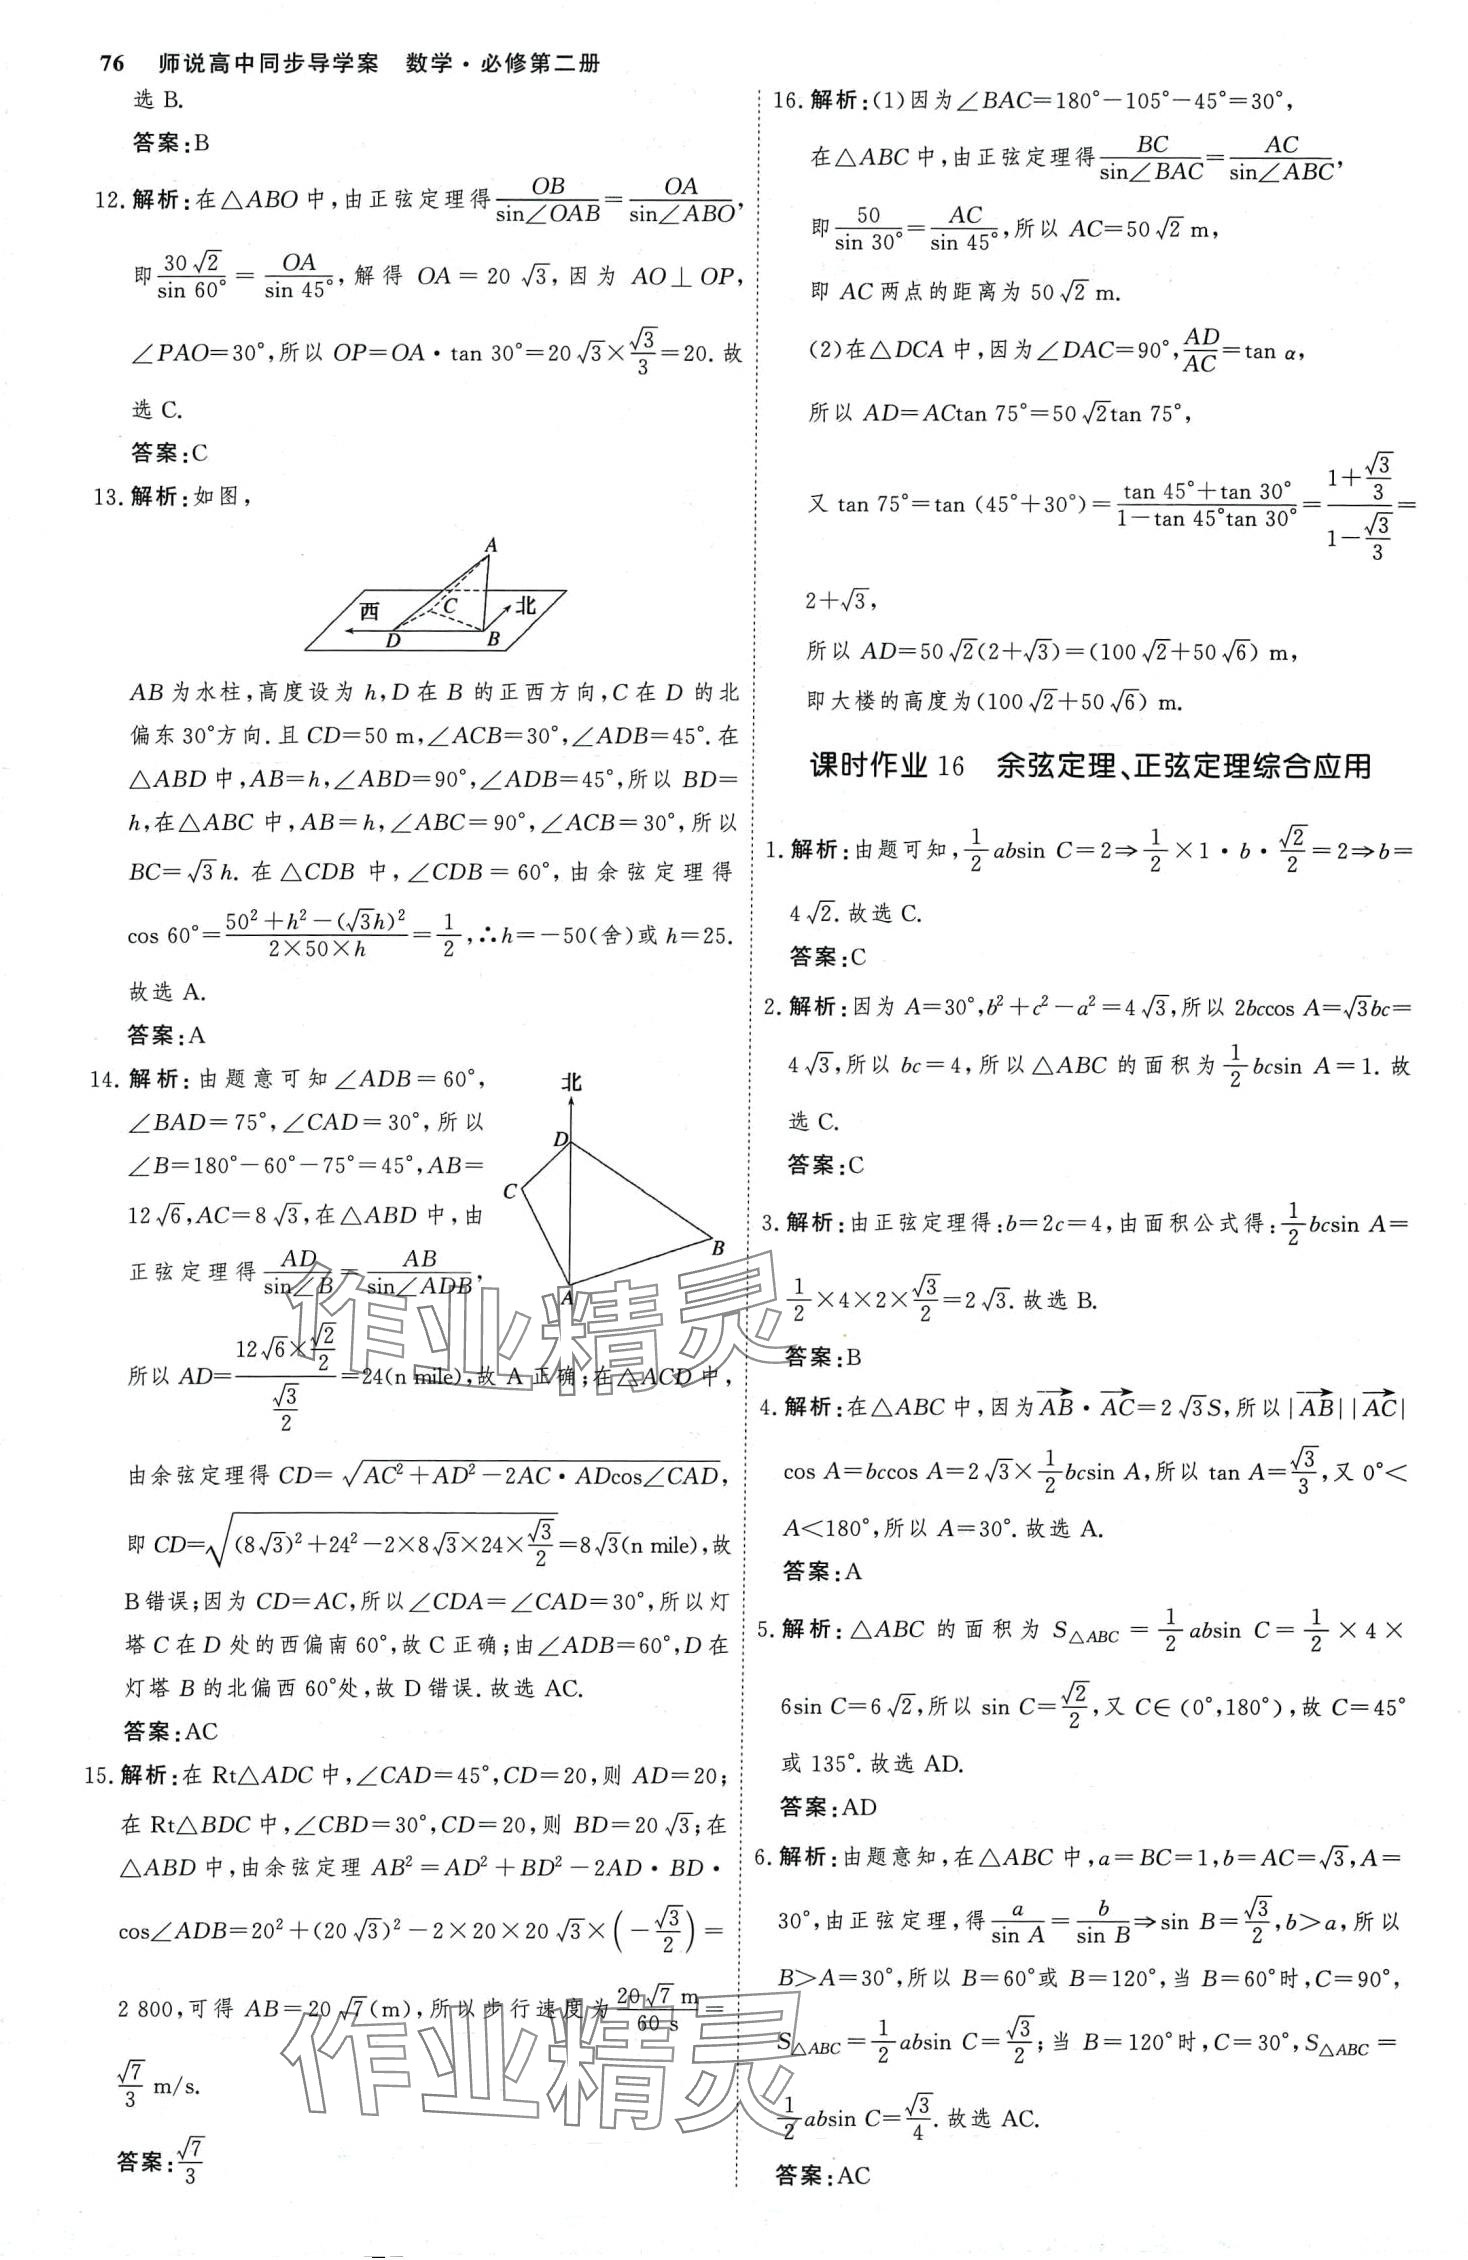 76 师说高中同步导学案 数学·必修第二册
选 B.
答案:B
12. 解析:在△ABO 中,由正弦定理得 OB/sin∠OAB = OA/sin∠ABO,
即 30√2/sin 60° = OA/sin 45°,解得 OA=20√3,因为 AO⊥OP,
∠PAO=30°,所以 OP=OA·tan 30°=20√3×√3/3=20.故
选 C.
答案:C
13. 解析:如图,
A
西
C
北
D
B
AB 为水柱,高度设为 h,D 在 B 的正西方向,C 在 D 的北
偏东 30°方向.且 CD=50 m,∠ACB=30°,∠ADB=45°.在
△ABD 中,AB=h,∠ABD=90°,∠ADB=45°,所以 BD=
h,在△ABC 中,AB=h,∠ABC=90°,∠ACB=30°,所以
BC=√3h.在△CDB 中,∠CDB=60°,由余弦定理得
cos 60°=(50²+h²-(√3h)²)/(2×50×h)=1/2,∴h=-50(舍)或 h=25.
故选 A.
答案:A
14. 解析:由题意可知∠ADB=60°,
∠BAD=75°,∠CAD=30°,所以
∠B=180°-60°-75°=45°,AB=
12√6,AC=8√3,在△ABD 中,由
正弦定理得 AD/sin∠B = AB/sin∠ADB,
北
D
C
B
A
所以 AD=(12√6×√2/2)/(√3/2)=24(n mile),故 A 正确;在△ACD 中,
由余弦定理得 CD=√(AC²+AD²-2AC·ADcos∠CAD),
即 CD=√((8√3)²+24²-2×8√3×24×√3/2)=8√3(n mile),故
B 错误;因为 CD=AC,所以∠CDA=∠CAD=30°,所以灯
塔 C 在 D 处的西偏南 60°,故 C 正确;由∠ADB=60°,D 在
灯塔 B 的北偏西 60°处,故 D 错误.故选 AC.
答案:AC
15. 解析:在 Rt△ADC 中,∠CAD=45°,CD=20,则 AD=20;
在 Rt△BDC 中,∠CBD=30°,CD=20,则 BD=20√3;在
△ABD 中,由余弦定理 AB²=AD²+BD²-2AD·BD·
cos∠ADB=20²+(20√3)²-2×20×20√3×(-√3/2)=
2 800,可得 AB=20√7(m),所以步行速度为 20√7 m/60 s=
√7/3 m/s.
答案:√7/3
16. 解析:(1)因为∠BAC=180°-105°-45°=30°,
在△ABC 中,由正弦定理得 BC/sin∠BAC = AC/sin∠ABC,
即 50/sin 30° = AC/sin 45°,所以 AC=50√2 m,
即 AC 两点的距离为 50√2 m.
(2)在△DCA 中,因为∠DAC=90°,AD/AC=tan α,
所以 AD=ACtan 75°=50√2tan 75°,
又 tan 75°=tan (45°+30°)=(tan 45°+tan 30°)/(1-tan 45°tan 30°)=(1+√3/3)/(1-√3/3)=
2+√3,
所以 AD=50√2(2+√3)=(100√2+50√6) m,
即大楼的高度为(100√2+50√6) m.
课时作业 16 余弦定理、正弦定理综合应用
1. 解析:由题可知,1/2 absin C=2⇒1/2×1·b·√2/2=2⇒b=
4√2.故选 C.
答案:C
2. 解析:因为 A=30°,b²+c²-a²=4√3,所以 2bccos A=√3bc=
4√3,所以 bc=4,所以△ABC 的面积为 1/2 bcsin A=1.故
选 C.
答案:C
3. 解析:由正弦定理得:b=2c=4,由面积公式得:1/2 bcsin A=
1/2×4×2×√3/2=2√3.故选 B.
答案:B
4. 解析:在△ABC 中,因为AB→·AC→=2√3S,所以|AB→||AC→|
cos A=bccos A=2√3×1/2 bcsin A,所以 tan A=√3/3,又 0°<
A<180°,所以 A=30°.故选 A.
答案:A
5. 解析:△ABC 的面积为 S△ABC=1/2 absin C=1/2×4×
6sin C=6√2,所以 sin C=√2/2,又 C∈(0°,180°),故 C=45°
或 135°.故选 AD.
答案:AD
6. 解析:由题意知,在△ABC 中,a=BC=1,b=AC=√3,A=
30°,由正弦定理,得 a/sin A = b/sin B⇒sin B=√3/2,b>a,所以
B>A=30°,所以 B=60°或 B=120°,当 B=60°时,C=90°,
S△ABC=1/2 absin C=√3/2;当 B=120°时,C=30°,S△ABC=
1/2 absin C=√3/4.故选 AC.
答案:AC
作业精灵
作业精灵